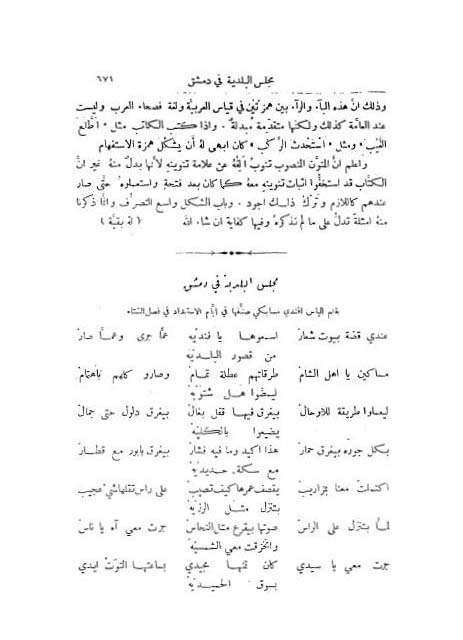 مجلس البلدية في دمشق ٦٧١
وذلك انَّ هذه البآء والرآء بين همزتين في قياس العربيَّة ولغة فصحاء العرب وليست
عند العامَّة كذلك ولكنها متقدّمة مُبدلة. واذا كتب الكاتب مثل « اطَّلع
الغيب » ومثل « استحدث الركب » كان ابهى له أن يشكّل همزة الاستفهام
واعلم انَّ المنوَّن المنصوب تنوبُ الِفُهُ عن علامة تنوينهِ لأنها بدلٌ منهُ غير انَّ
الكتَّاب قد استحبُّوا اثبات تنوينهِ معهُ كما كان بعد فتحة واستعملوهُ حتَّى صار
عندهم كاللازم وتركُ ذلك اجود. وباب الشكل واسع التصرُّف وانَّا ذكرنا
منهُ امثلة تدلُّ على ما لم نذكرهُ وفيها كفاية ان شاء الله ( لهُ بقيَّة )
مجلس البلدية في دمشق
بقلم الياس افندي مسابكي صنَّفها في ايَّام الاستبداد في فصل الشتاء
عندي قصَّة بيوت شعارْ اسموها يا فنديَّه عمَّا جرى وعمَّا صارْ
من قصور البلديَّه
مساكين يا اهل الشامْ طرقاتهم عطلة تمامْ وصارو كلهم باهتمامْ
ليعطوا هل شتويَّه
ليعملوا طريقة للاوحالْ بيغرق فيها قفل بغالْ بيغرق دلول حتى جمالْ
يضيعوا بالكليَّه
بكل جورَه بيغرق حمارْ هذا اكيد وما فيه فشارْ بيغرق بابور مع قطارْ
مع سكَّة حديديَّه
اكتملتْ معنا بزاريبْ يقصف عمرها كيف تصيبْ على راس ثقلها شي عجيب
بتنزل مثل الرزيَّه
لمَّا بتنزل على الراسْ صوتها بيقرع مثل النحاسْ جرت معي آه يا ناسْ
وانخزقت معي الشمسيَّه
جرت معي يا سيدي كان ثمنها مجيدي بساعتها التوتْ ايدي
بسوق الحميديَّه